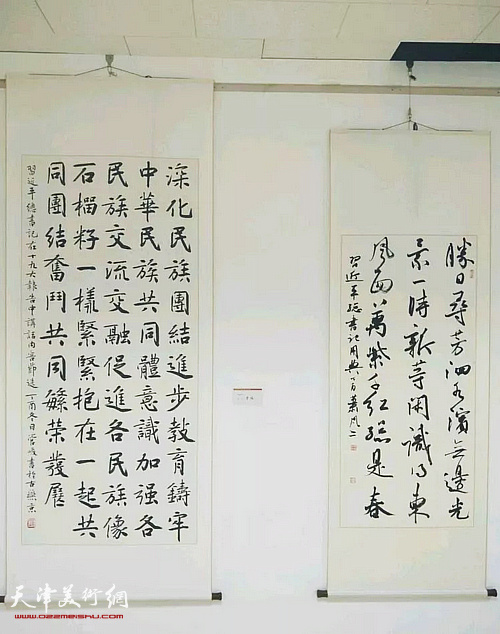 深化民族團結進步教育鑄牢
中華民族共同體意識加强各
民族交流交融促進各民族像
石榴籽一樣緊緊抱在一起共
同團結奮鬥共同繁榮發展
習近平總書記在十九大報告中講話内容節選丁酉冬日
勝日尋芳泗水濱無邊光
景一時新等閑識得東
風面萬紫千紅總是春
習近平總書記用典
天津美術網
www.022meishu.com